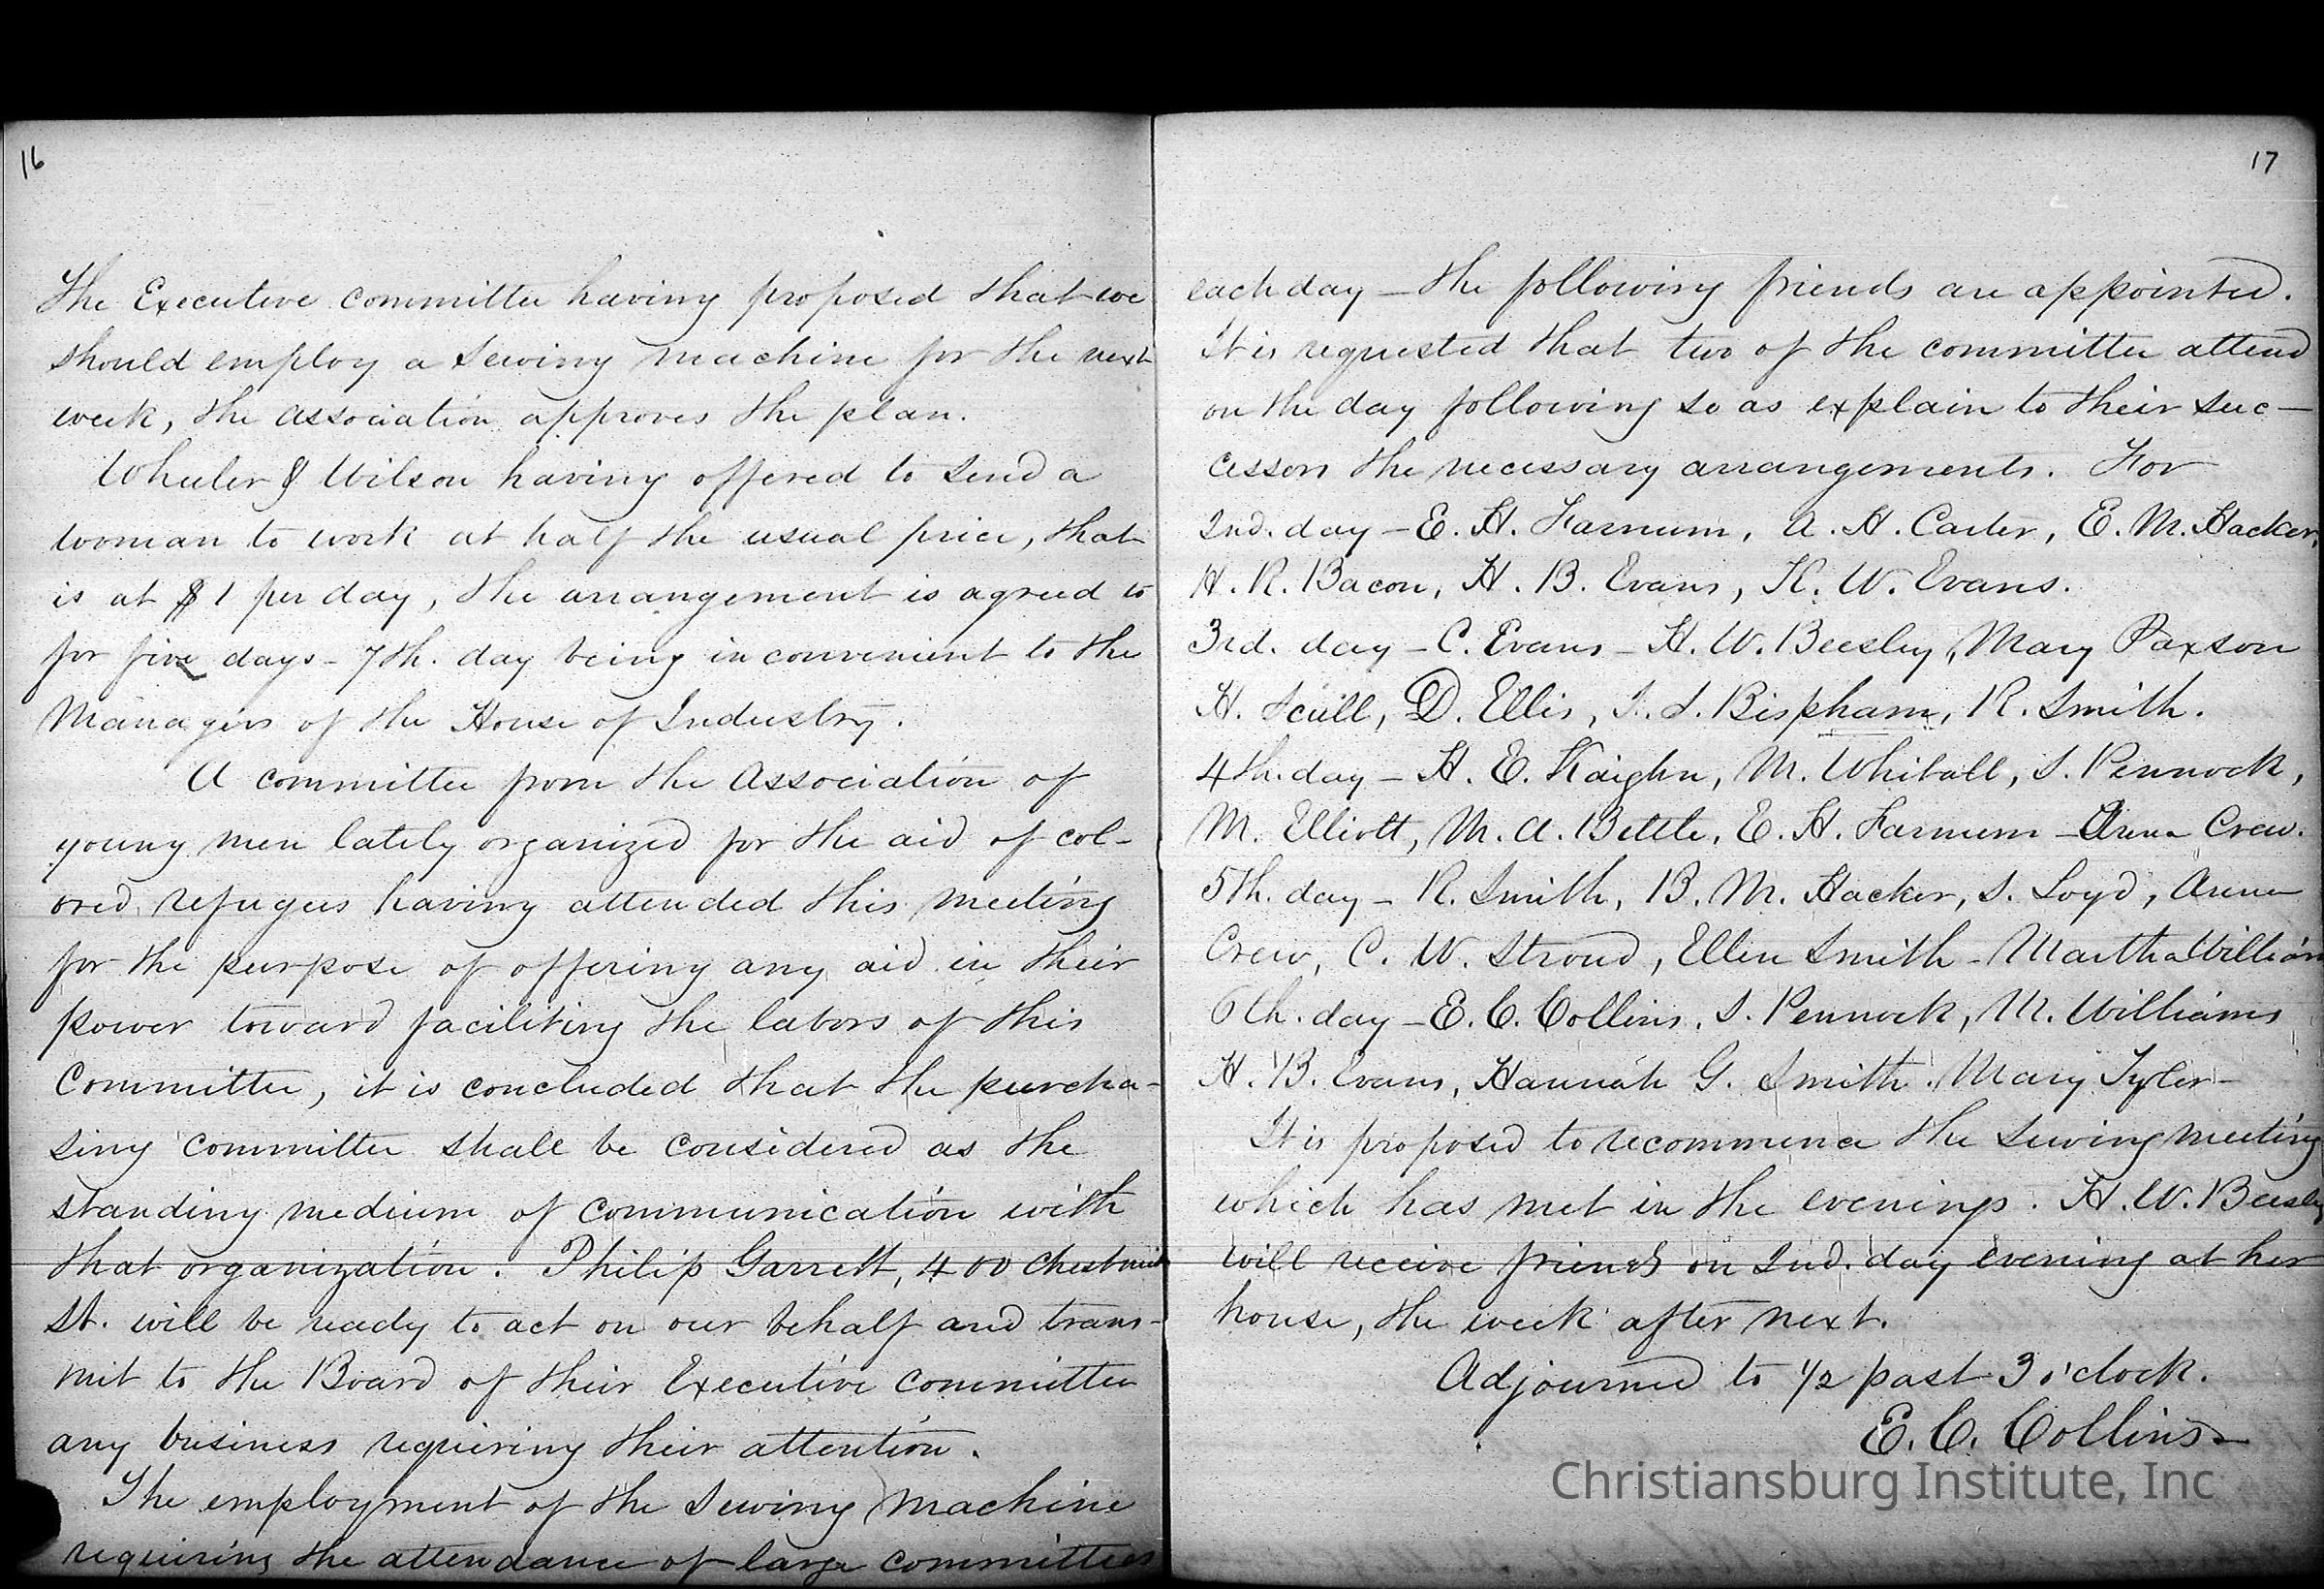 16
The Executive committee having proposed that we
should employ a sewing machine for the next
week, the association approves the plan.
Wheeler & Wilson having offered to send a
woman to work at half the usual price, that
is at $1 per day, the arrangement is agreed to
for five days - 7th. day being inconvenient to the
Managers of the House of Industry.
A committee from the Association of
young men lately organized for the aid of col-
ored refugees having attended this meeting
for the purpose of offering any aid in their
power toward faciliting the labors of this
Committee, it is concluded that the purcha-
sing committee shall be considered as the
standing medium of communication with
that organization. Philip Garrett, 400 Chestnut
St. will be ready to act on our behalf and trans-
mit to the Board of their Executive committee
any business requiring their attention.
The employment of the Sewing Machine
requiring the attendance of large committees
17
each day - the following friends are appointed.
It is requested that two of the committee attend
on the day following so as explain to their suc-
cessors the necessary arrangements. For
2nd. day - E. H. Farnum, A. H. Carter, E. M. Hacker,
H. R. Bacon, H. B. Evans, K. W. Evans.
3rd. day - C. Evans - H. W. Beesley, Mary Paxson
H. Scull, D. Ellis, S. Bispham, R. Smith.
4th. day - H. E. Kaighn, M. Whitall, S. Pennock,
M. Elliott, M. A. Bettle, E. H. Farnum - Anna Crew.
5th. day - R. Smith, B. M. Hacker, S. Loyd, Anna
Crew, C. W. Stroud, Ellen Smith - Martha William
6th. day - E. C. Collins, S. Pennock, M. Williams
H. B. Evans, Hannah G. Smith. Mary Tyler -
It is proposed to recommence the sewing meeting
which has met in the evenings. H. W. Beesley
will receive friends on 2nd. day evening at her
house, the week after next.
Adjourned to 1/2 past 3 o'clock.
E. C. Collins -
Christiansburg Institute, Inc